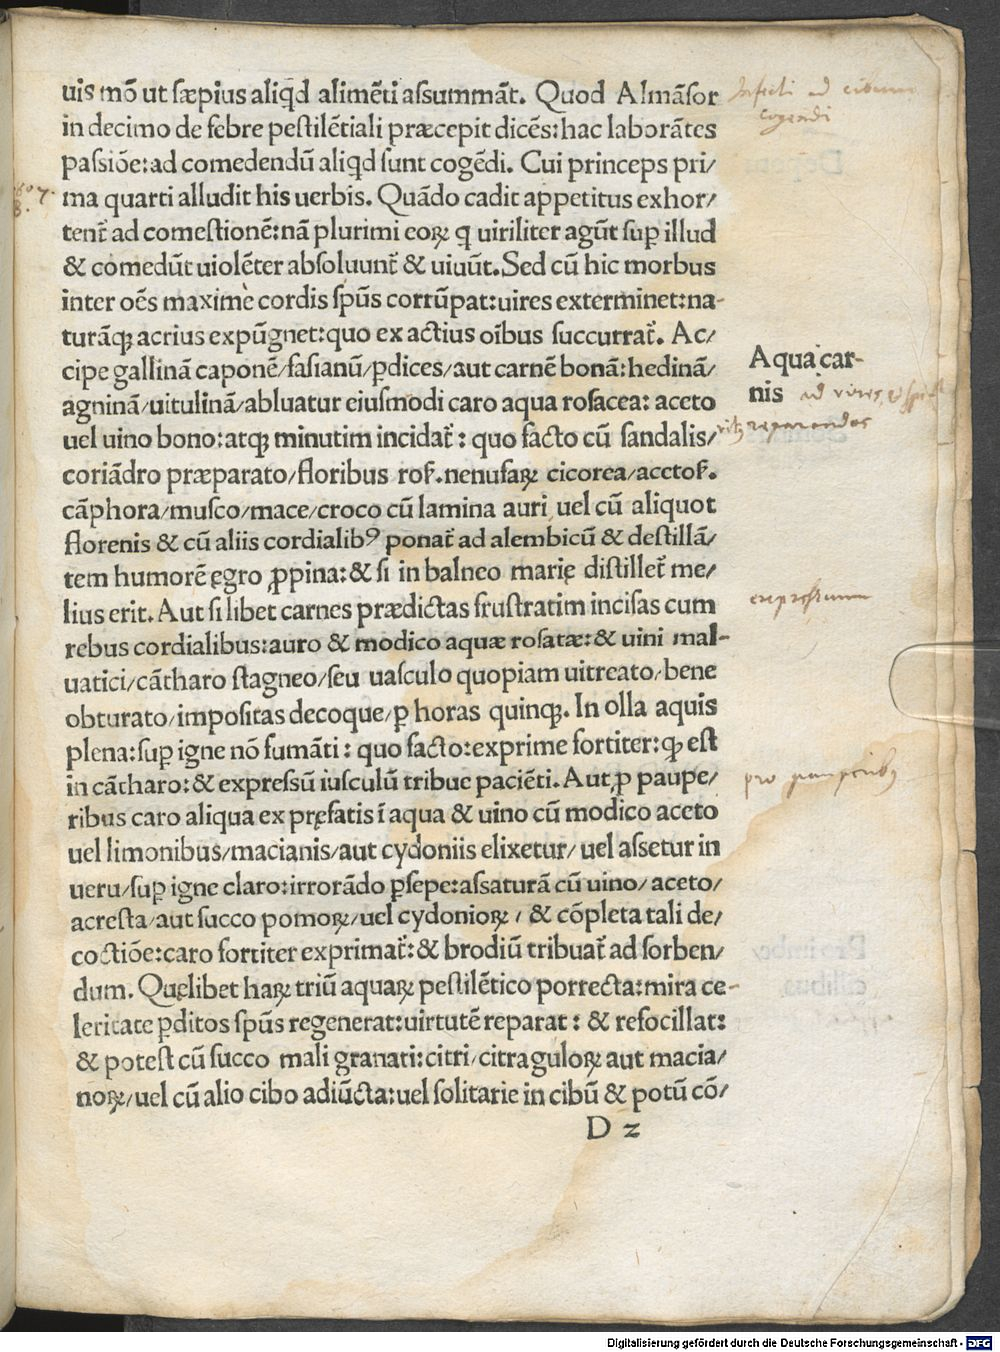 uis mō ut sæpius aliqd alimēti assummāt. Quod Almāsor
in decimo de febre pestilētiali præcepit dicēs: hac laborātes
passiōe: ad comedendū aliqd sunt cogēdi. Cui princeps pri/
ma quarti alludit his uerbis. Quādo cadit appetitus exhor/
tenť ad comestionē: nā plurimi eoꝝ q uiriliter agūt suꝑ illud
& comedūt uiolēter absoluunť & uiuūt. Sed cū hic morbus
inter oēs maxime cordis spūs corrūpat: uires exterminet: na-
turāqꝫ acrius expūgnet: quo ex actius oībus succurrať. Ac/
cipe gallinā caponē/fasianū/ꝑdices/aut carnē bonā: hedinā/
agninā/uitulinā/abluatur eiusmodi caro aqua rosacea: aceto
uel uino bono: atqꝫ minutim incidať: quo facto cū sandalis/
coriādro præparato/floribus ros. nenufaꝝ cicorea/accetos.
cāphora/musco/mace/croco cū lamina auri uel cū aliquot
florenis & cū aliis cordialibꝰ ponať ad alembicū & destillā/
tem humorē ęgro ꝓpina: & si in balneo marię distilleť me/
lius erit. Aut si libet carnes prædictas frustratim incisas cum
rebus cordialibus: auro & modico aquæ rosatæ: & uini mal-
uatici/cātharo stagneo/seu uasculo quopiam uitreato/bene
obturato/impositas decoque/ꝑ horas quinqꝫ. In olla aquis
plena: suꝑ igne nō fumāti: quo facto: exprime fortiter: qꝫ est
in cātharo: & expressū iusculū tribue paciēti. Aut ꝓ paupe/
ribus caro aliqua ex pręfatis ī aqua & uino cū modico aceto
uel limonibus/macianis/aut cydoniis elixetur/uel assetur in
ueru/suꝑ igne claro: irrorādo ꝑsepe: assaturā cū uino/aceto/
acresta/aut succo pomoꝝ/uel cydonioꝝ/& cōpleta tali de/
coctiōe: caro fortiter exprimať: & brodiū tribuať ad sorben/
dum. Quęlibet haꝝ triū aquaꝝ pestilētico porrecta: mira ce-
leritate ꝑditos spūs regenerat: uirtutē reparat: & refocillat:
& potest cū succo mali granati: citri/citraguloꝝ aut macia/
noꝝ/uel cū alio cibo adiūcta: uel solitarie in cibū & potū cō/
D 2
Infecti ad cibum
cogendi
Aqua car-
nis ad vires
reparandos
expressum
pro pauperibus
Digitalisierung gefördert durch die Deutsche Forschungsgemeinschaft - DFG